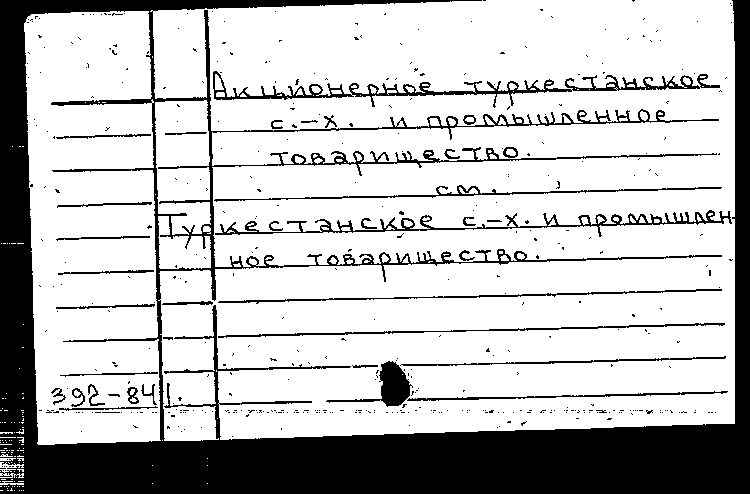 Акционерное туркестанское
с.-х. и промышленное
товарищество.
см.
Туркестанское с.-х. и промышлен-
ное товарищество.
392-841.